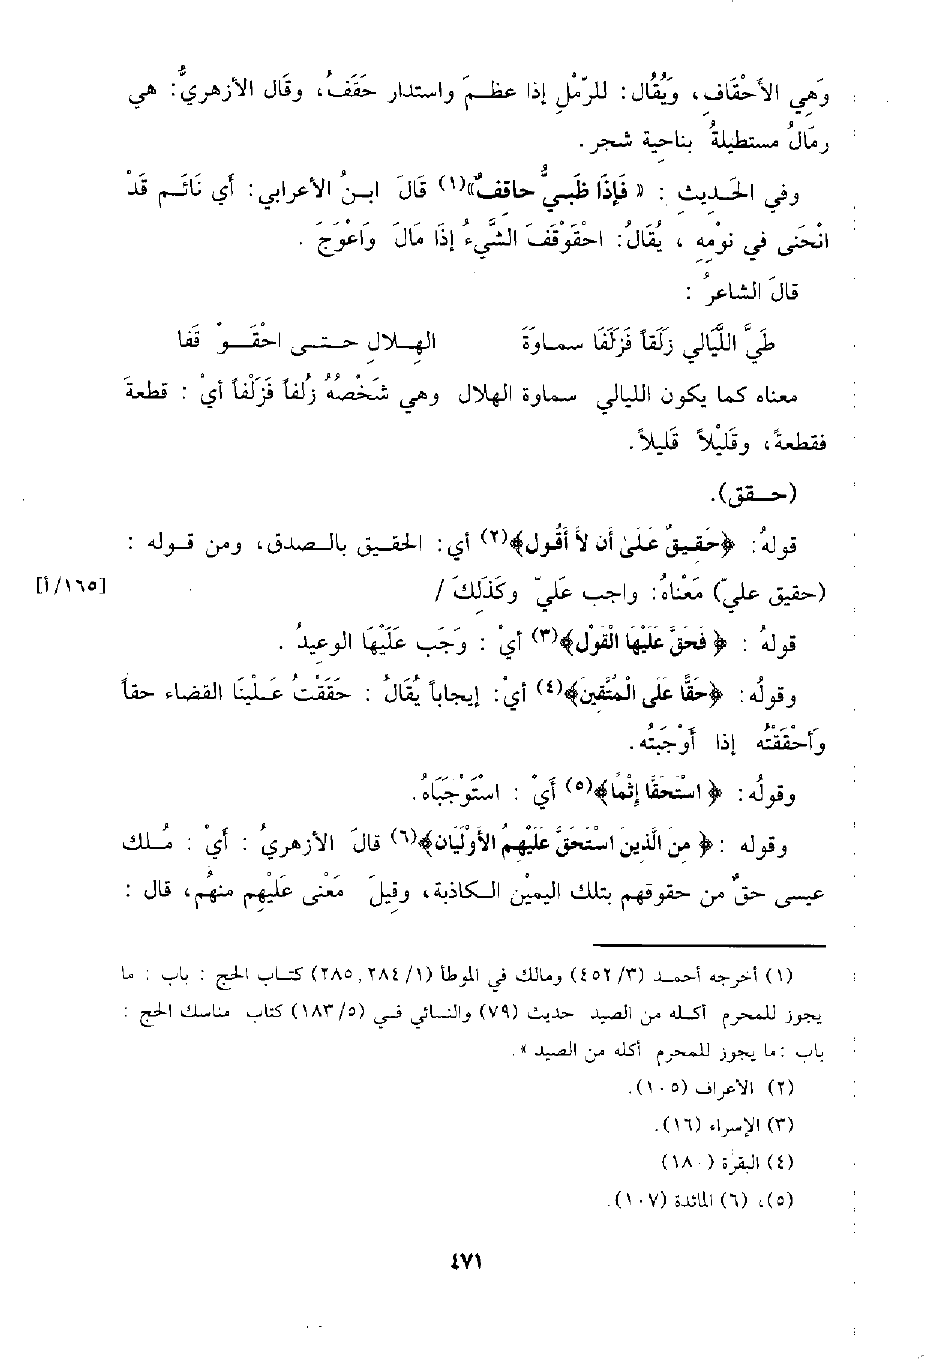 وَهِي الأَحْقَافِ، وَيُقَال: للرّمْلِ إذا عظمَ واستدار حَقَفُ، وقَال الأزهريُّ: هي
رمَالُ مستطيلةُ بناحِية شجر.
وفي الحَديثِ : « فَإِذَا ظَبيٌّ حاقفٌ»(١) قَالَ ابنُ الأعرابي: أي نَائم قَدْ
انْحَنى في نوْمِهِ ، يُقَالُ: احْقَوْقَفَ الشَّيءُ إذَا مَالَ وَاعْوَجَّ .
قالَ الشاعرُ :
طَيَّ اللَّيَالي زلَقاً فَزَلَفَا سماوَةَ الهلالِ حتى احْقَوْ قَفا
معناه كما يكون الليالي سماوة الهلال وهي شَخْصُهُ زُلفاً فَزَلْفاً أيْ : قطعةَ
فقطعةً، وقَلِيْلاً قَلِيلاً.
(حقق).
قولهُ: ﴿حَقِيقٌ عَلَى أن لاَ أَقُول﴾(٢) أي: الحقيق بالصدق، ومن قوله :
(حقيق عليّ) مَعْنَاهُ: واجب عَليّ وكَذَلِكَ /
[١٦٥/أ]
قولهُ : ﴿ فَحَقَّ عَلَيْهَا الْقَوْل﴾(٣) أيْ : وَجَب عَلَيْهَا الوعيدُ .
وقولُه: ﴿حَقًّا عَلَى الْمُتَّقِينَ﴾(٤) أيْ: إيجاباً يُقَالُ : حَقَقْتُ عَلْيْنَا القضاء حقاً
وَأحْقَقْتُه إذا أَوْجَبتُه.
وقولُه: ﴿ اسْتَحَقَّا إِثْمًا﴾(٥) أَيْ : اسْتَوْجَبَاهُ.
وقوله :﴿ مِنَ الَّذِينَ اسْتَحَقَّ عَلَيْهِمُ الأَوْلَيَان﴾(٦) قَالَ الأزهريُ : أيْ : مُلك
عيسى حقٌ من حقوقهم بتلك اليميْنِ الكاذبة، وقيلَ مَعْنى عَلَيْهِم منهُم، قال :
(١) أخرجه أحمد (٤٥٢/٣) ومالك في الموطأ (٢٨٤/١ ,٢٨٥) كتاب الحج : باب : ما
يجوز للمحرم أكله من الصيد حديث (٧٩) والنسائي في (١٨٣/٥) كتاب مناسك الحج :
باب :ما يجوز للمحرم أكله من الصيد ».
(٢) الأعراف (١٠٥).
(٣) الإسراء (١٦).
(٤) البقرة (١٨٠)
(٥)، (٦) المائدة (١٠٧).
٤٧١